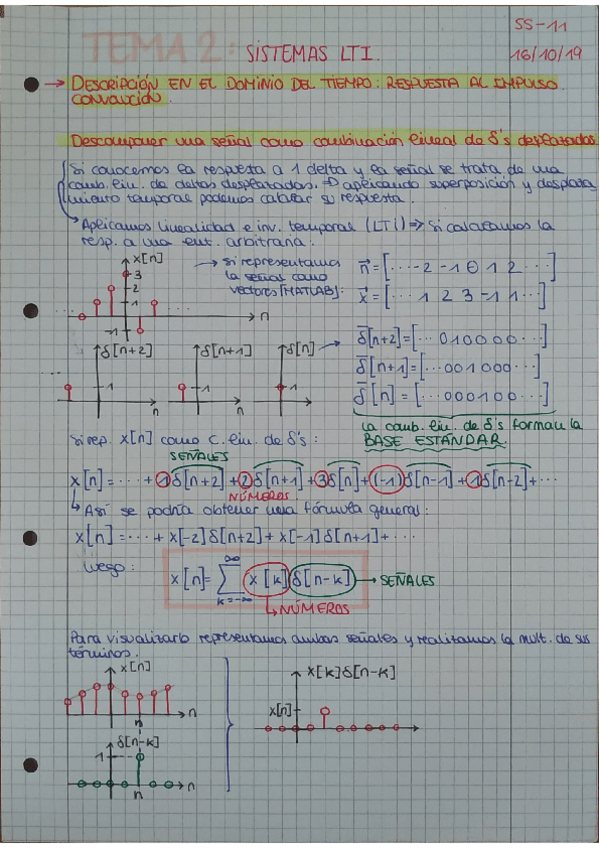 SS-11
TEMA 2: SISTEMAS LTI.
16/10/19
→ DESCRIPCIÓN EN EL DOMINIO DEL TIEMPO: RESPUESTA AL IMPULSO.
CONVOLUCIÓN.
Descomponer una señal como combinación lineal de δ's desplazadas
Si conocemos la respuesta a 1 delta y la señal se trata de una
comb. lin. de deltas desplazadas. ⇒ aplicando superposición y desplaza
miento temporal podemos calcular su respuesta.
Aplicamos linealidad e inv. temporal (LTI) ⇒ Si calculamos la
resp. a una ent. arbitraria.
x[n]
3
2
1
-1
n
→ si representamos
la señal como
vectores [MATLAB]:
n = [··· -2 -1 0 1 2 ···]
x = [··· 1 2 3 -1 1 ···]
δ[n+2]
δ[n+1]
δ[n]
1
1
1
n
n
n
δ[n+2] = [··· 0 1 0 0 0 0 ···]
δ[n+1] = [··· 0 0 1 0 0 0 ···]
δ[n] = [··· 0 0 0 1 0 0 ···]
la comb. lin. de δ's forman la
BASE ESTÁNDAR.
Si rep. x[n] como c. lin. de δ's:
SEÑALES
x[n] = ··· + 1 δ[n+2] + 2 δ[n+1] + 3 δ[n] + (-1) δ[n-1] + 1 δ[n-2] + ···
NÚMEROS.
Así se podría obtener una fórmula general:
x[n] = ··· + x[-2] δ[n+2] + x[-1] δ[n+1] + ···
Luego:
x[n] = ∑ k=-∞ ∞ x[k] δ[n-k] → SEÑALES
NÚMEROS
Para visualizarlo representamos ambas señales y realizamos la mult. de sus
términos.
x[n]
n
n
δ[n-k]
1
n
n
x[k]δ[n-k]
x[n]